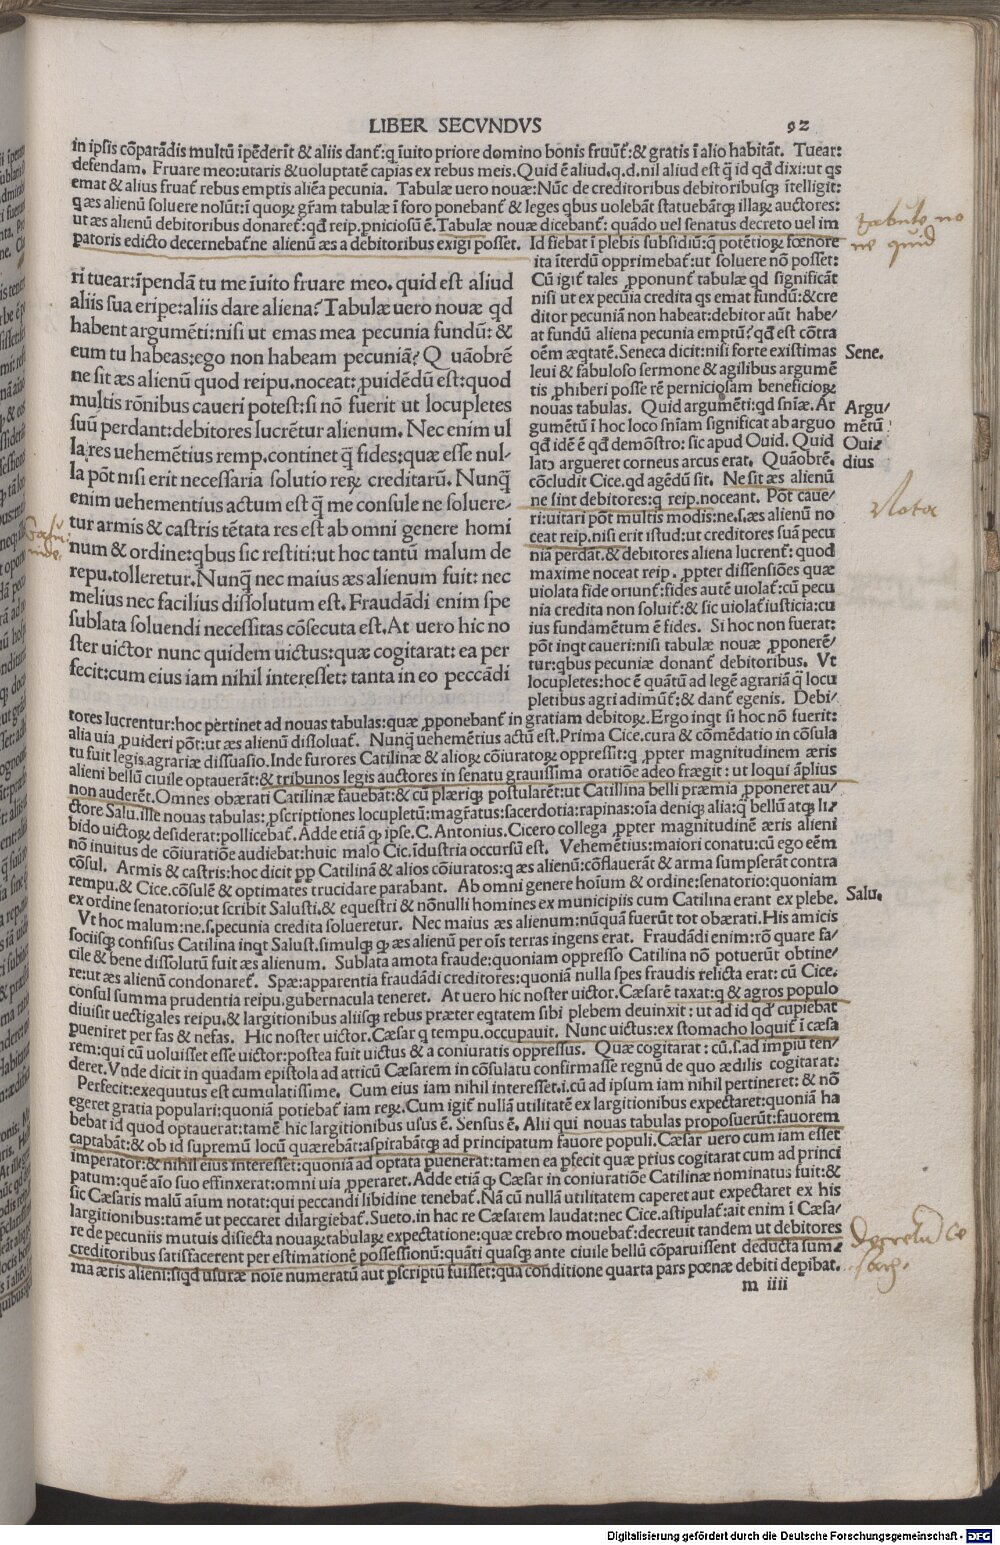 LIBER SECVNDVS 92
in ipsis cõparãdis multũ ĩpẽderĩt & aliis dant᷑:q ĩuito priore domino bonis fruũt᷑:& gratis ĩ alio habitãt. Tuear:
defendam. Fruare meo:utaris & uoluptatẽ capias ex rebus meis. Quid ẽ aliud.q.d.nil aliud est q̃ id qđ dixi:ut qs
emat & alius fruat᷑ rebus emptis aliẽa pecunia. Tabulæ uero nouæ:Nũc de creditoribus debitoribusq; ĩtelligit:
q æs alienũ soluere nolũt:ĩ quoꝝ gr̃am tabulæ ĩ foro ponebant᷑ & leges qbus uolebãt statuebãtq; illaꝝ auctores:
ut æs alienũ debitoribus donaret᷑:qđ reip.pniciosũ ẽ. Tabulæ nouæ dicebant᷑: quãdo uel senatus decreto uel im
patoris edicto decernebat᷑ ne alienũ æs a debitoribus exigi posset. Id fiebat ĩ plebis subsidiũ:q̃ potẽtioꝝ fœnore
tabulę no
ne quid
ri tuear:ĩpendã tu me ĩuito fruare meo. quid est aliud
aliis sua eripe:aliis dare aliena? Tabulæ uero nouæ qđ
habent argumẽti:nisi ut emas mea pecunia fundũ: &
eum tu habeas:ego non habeam pecuniã? Q uãobrẽ
ne sit æs alienũ quod reipu.noceat: ꝓuidẽdũ est:quod
multis rõnibus caueri potest:si nõ fuerit ut locupletes
suũ perdant:debitores lucrẽtur alienum. Nec enim ul
la res uehemẽtius remp.continet q̃ fides:quæ esse nul/
la põt nisi erit necessaria solutio reꝝ creditarũ. Nunq̃
enim uehementius actum est q̃ me consule ne soluere/
tur armis & castris tẽtata res est ab omni genere homi
num & ordine:qbus sic restiti:ut hoc tantũ malum de
repu.tolleretur. Nunq̃ nec maius æs alienum fuit: nec
melius nec facilius dissolutum est. Fraudãdi enim spe
sublata soluendi necessitas cõsecuta est. At uero hic no
ster uictor nunc quidem uictus:quæ cogitarat: ea per
fecit:cum eius iam nihil interesset: tanta in eo peccãdi
ita ĩterdũ opprimebat᷑:ut soluere nõ posset:
Cũ igit᷑ tales ꝓponunt᷑ tabulæ qđ significãt
nisi ut ex pecũia credita qs emat fundũ:& cre
ditor pecuniã non habeat:debitor aũt habe/
at fundũ aliena pecunia emptũ? qđ est cõtra
oẽm æqtatẽ. Seneca dicit:nisi forte existimas
leui & fabuloso sermone & agilibus argumẽ
tis ꝓhiberi posse rẽ perniciosam beneficioꝝ
nouas tabulas. Quid argumẽti:qđ sñiæ. Ar
gumẽtũ ĩ hoc loco sñiam significat ab arguo
qđ idẽ ẽ qđ demõstro: sic apud Ouid. Quid
lato argueret corneus arcus erat. Quãobrẽ.
cõcludit Cice.qđ agẽdũ sit. Ne sit æs alienũ
ne sint debitores:q reip.noceant. Põt caue/
ri:uitari põt multis modis:ne.s.æs alienũ no
ceat reip.nisi erit istud:ut creditores suã pecu
niã perdãt:& debitores aliena lucrent᷑: quod
maxime noceat reip. ꝓpter dissensiões quæ
uiolata fide oriunt᷑:fides autẽ uiolat᷑:cũ pecu
nia credita non soluit᷑:& sic uiolat᷑ iusticia:cu
ius fundamẽtum ẽ fides. Si hoc non fuerat:
põt inqt caueri:nisi tabulæ nouæ ꝓponerẽ/
tur:qbus pecuniæ donant᷑ debitoribus. Vt
locupletes:hoc ẽ quãtũ ad legẽ agrariã q locu
pletibus agri adimũt᷑:& dant᷑ egenis. Debi/
Sene.
Argu/
mẽtũ
Oui/
dius
Nota
tores lucrentur:hoc pertinet ad nouas tabulas:quæ ꝓponebant᷑ in gratiam debitoꝝ. Ergo inqt si hoc nõ fuerit:
alia uia ꝓuideri põt:ut æs alienũ dissoluat᷑. Nunq̃ uehemẽtius actũ est. Prima Cice.cura & cõmẽdatio in cõsula
tu fuit legis agrariæ dissuasio. Inde furores Catilinæ & alioꝝ cõiuratoꝝ oppressit:q ꝓpter magnitudinem æris
alieni bellũ ciuile optauerãt:& tribunos legis auctores in senatu grauissima oratiõe adeo frægit : ut loqui ãplius
non auderẽt. Omnes obærati Catilinæ fauebãt:& cũ plæriq; postularẽt:ut Catillina belli præmia ꝓponeret au/
ctore Salu.ille nouas tabulas: pscriptiones locupletũ:magr̃atus:sacerdotia:rapinas:oĩa deniq; alia:q̃ bellũ atq; li/
bido uictoꝝ desiderat:pollicebat᷑. Adde etiã q ipse. C. Antonius. Cicero collega ꝓpter magnitudinẽ æris alieni
nõ inuitus de cõiuratiõe audiebat:huic malo Cic.ĩdustria occursũ est. Vehemẽtius:maiori conatu:cũ ego eẽm
cõsul. Armis & castris:hoc dicit ꝓp Catilinã & alios cõiuratos:q æs alienũ:cõflauerãt & arma sumpserãt contra
rempu.& Cice.cõsulẽ & optimates trucidare parabant. Ab omni genere hoĩum & ordine:senatorio:quoniam
ex ordine senatorio:ut scribit Salusti.& equestri & nõnulli homines ex municipiis cum Catilina erant ex plebe.
Salu.
Vt hoc malum:ne.s.pecunia credita solueretur. Nec maius æs alienum:nũquã fuerũt tot obærati. His amicis
sociisq; confisus Catilina inqt Salust.simulq; q æs alienũ per oĩs terras ingens erat. Fraudãdi enim:rõ quare fa/
cile & bene dissolutũ fuit æs alienum. Sublata amota fraude:quoniam oppresso Catilina nõ potuerũt obtine/
re:ut æs alienũ condonaret᷑. Spæ:apparentia fraudãdi creditores:quoniã nulla spes fraudis relicta erat: cũ Cice.
consul summa prudentia reipu.gubernacula teneret. At uero hic noster uictor. Cæsarẽ taxat:q & agros populo
diuisit uectigales reipu.& largitionibus aliisq; rebus præter eqtatem sibi plebem deuinxit : ut ad id qđ cupiebat
pueniret per fas & nefas. Hic noster uictor. Cæsar q tempu.occupauit. Nunc uictus:ex stomacho loquit᷑ ĩ cæsa
rem:qui cũ uoluisset esse uictor:postea fuit uictus & a coniuratis oppressus. Quæ cogitarat: cũ.s.ad impiũ ten/
deret. Vnde dicit in quadam epistola ad atticũ Cæsarem in cõsulatu confirmasse regnũ de quo ædilis cogitarat:
Perfecit:exequutus est cumulatissime. Cum eius iam nihil interesset.i.cũ ad ipsum iam nihil pertineret: & nõ
egeret gratia populari:quoniã potiebat᷑ iam reꝝ. Cum igit᷑ nullã utilitatẽ ex largitionibus expectaret:quoniã ha
bebat id quod optauerat:tamẽ hic largitionibus usus ẽ. Sensus ẽ. Alii qui nouas tabulas proposuerũt:fauorem
captabãt:& ob id supremũ locũ quærebãt:aspirabãtq; ad principatum fauore populi. Cæsar uero cum iam esset
imperator:& nihil eius interesset:quoniã ad optata puenerat:tamen ea pfecit quæ prius cogitarat cum ad princi
patum:quẽ aĩo suo effinxerat:omni uia ꝓperaret. Adde etiã q Cæsar in coniuratiõe Catilinæ nominatus fuit:&
sic Cæsaris malũ aĩum notat:qui peccandi libidine tenebat᷑. Nã cũ nullã utilitatem caperet aut expectaret ex his
largitionibus:tamẽ ut peccaret dilargiebat᷑. Sueto.in hac re Cæsarem laudat:nec Cice.astipulat᷑:ait enim ĩ Cæsa/
re de pecuniis mutuis disiecta nouaꝝ tabulaꝝ expectatione:quæ crebro mouebat᷑:decreuit tandem ut debitores
creditoribus satisfacerent per estimationẽ possessionũ:quãti quasq; ante ciuile bellũ cõparuissent deducta sum/
ma æris alieni:siqđ usuræ noĩe numeratũ aut pscriptũ fuisset:qua conditione quarta pars pœnæ debiti depibat.
Decretũ Ce
m iiii
Digitalisierung gefördert durch die Deutsche Forschungsgemeinschaft - DFG